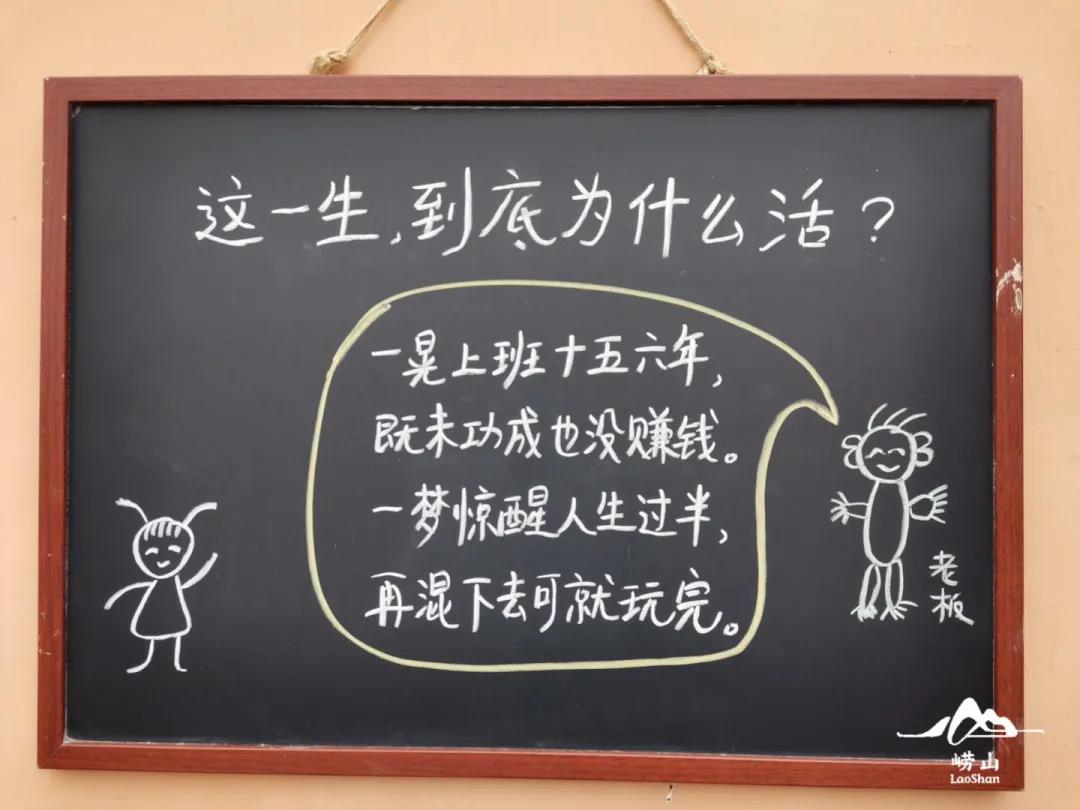 这一生,到底为什么活?
一晃上班十五六年,
既未功成也没赚钱。
一梦惊醒人生过半,
再混下去可就玩完。
老板
崂山
LaoShan